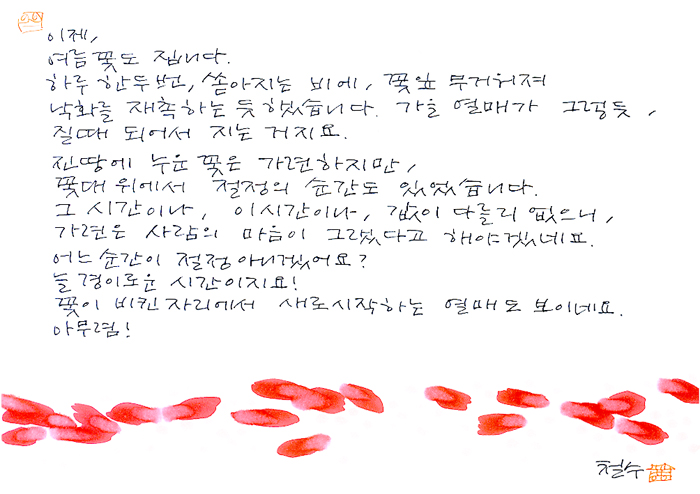 이제,
여름꽃도 집니다.
하루 한두번, 쏟아지는 비에, 꽃잎 무거워져
낙화를 재촉하는 듯 했습니다. 가을 열매가 그렇듯,
질때 되어서 지는 거지요.
진땅에 누운 꽃은 가련하지만,
꽃대 위에서 절정의 순간도 있었습니다.
그 시간이나, 이시간이나, 값이 다를리 없으니,
가련은 사람의 마음이 그랬다고 해야겠네요.
어느 순간이 절정 아니겠어요?
늘 경이로운 시간이지요!
꽃이 비킨 자리에서 새로 시작하는 열매도 보이네요.
아무렴!
철수